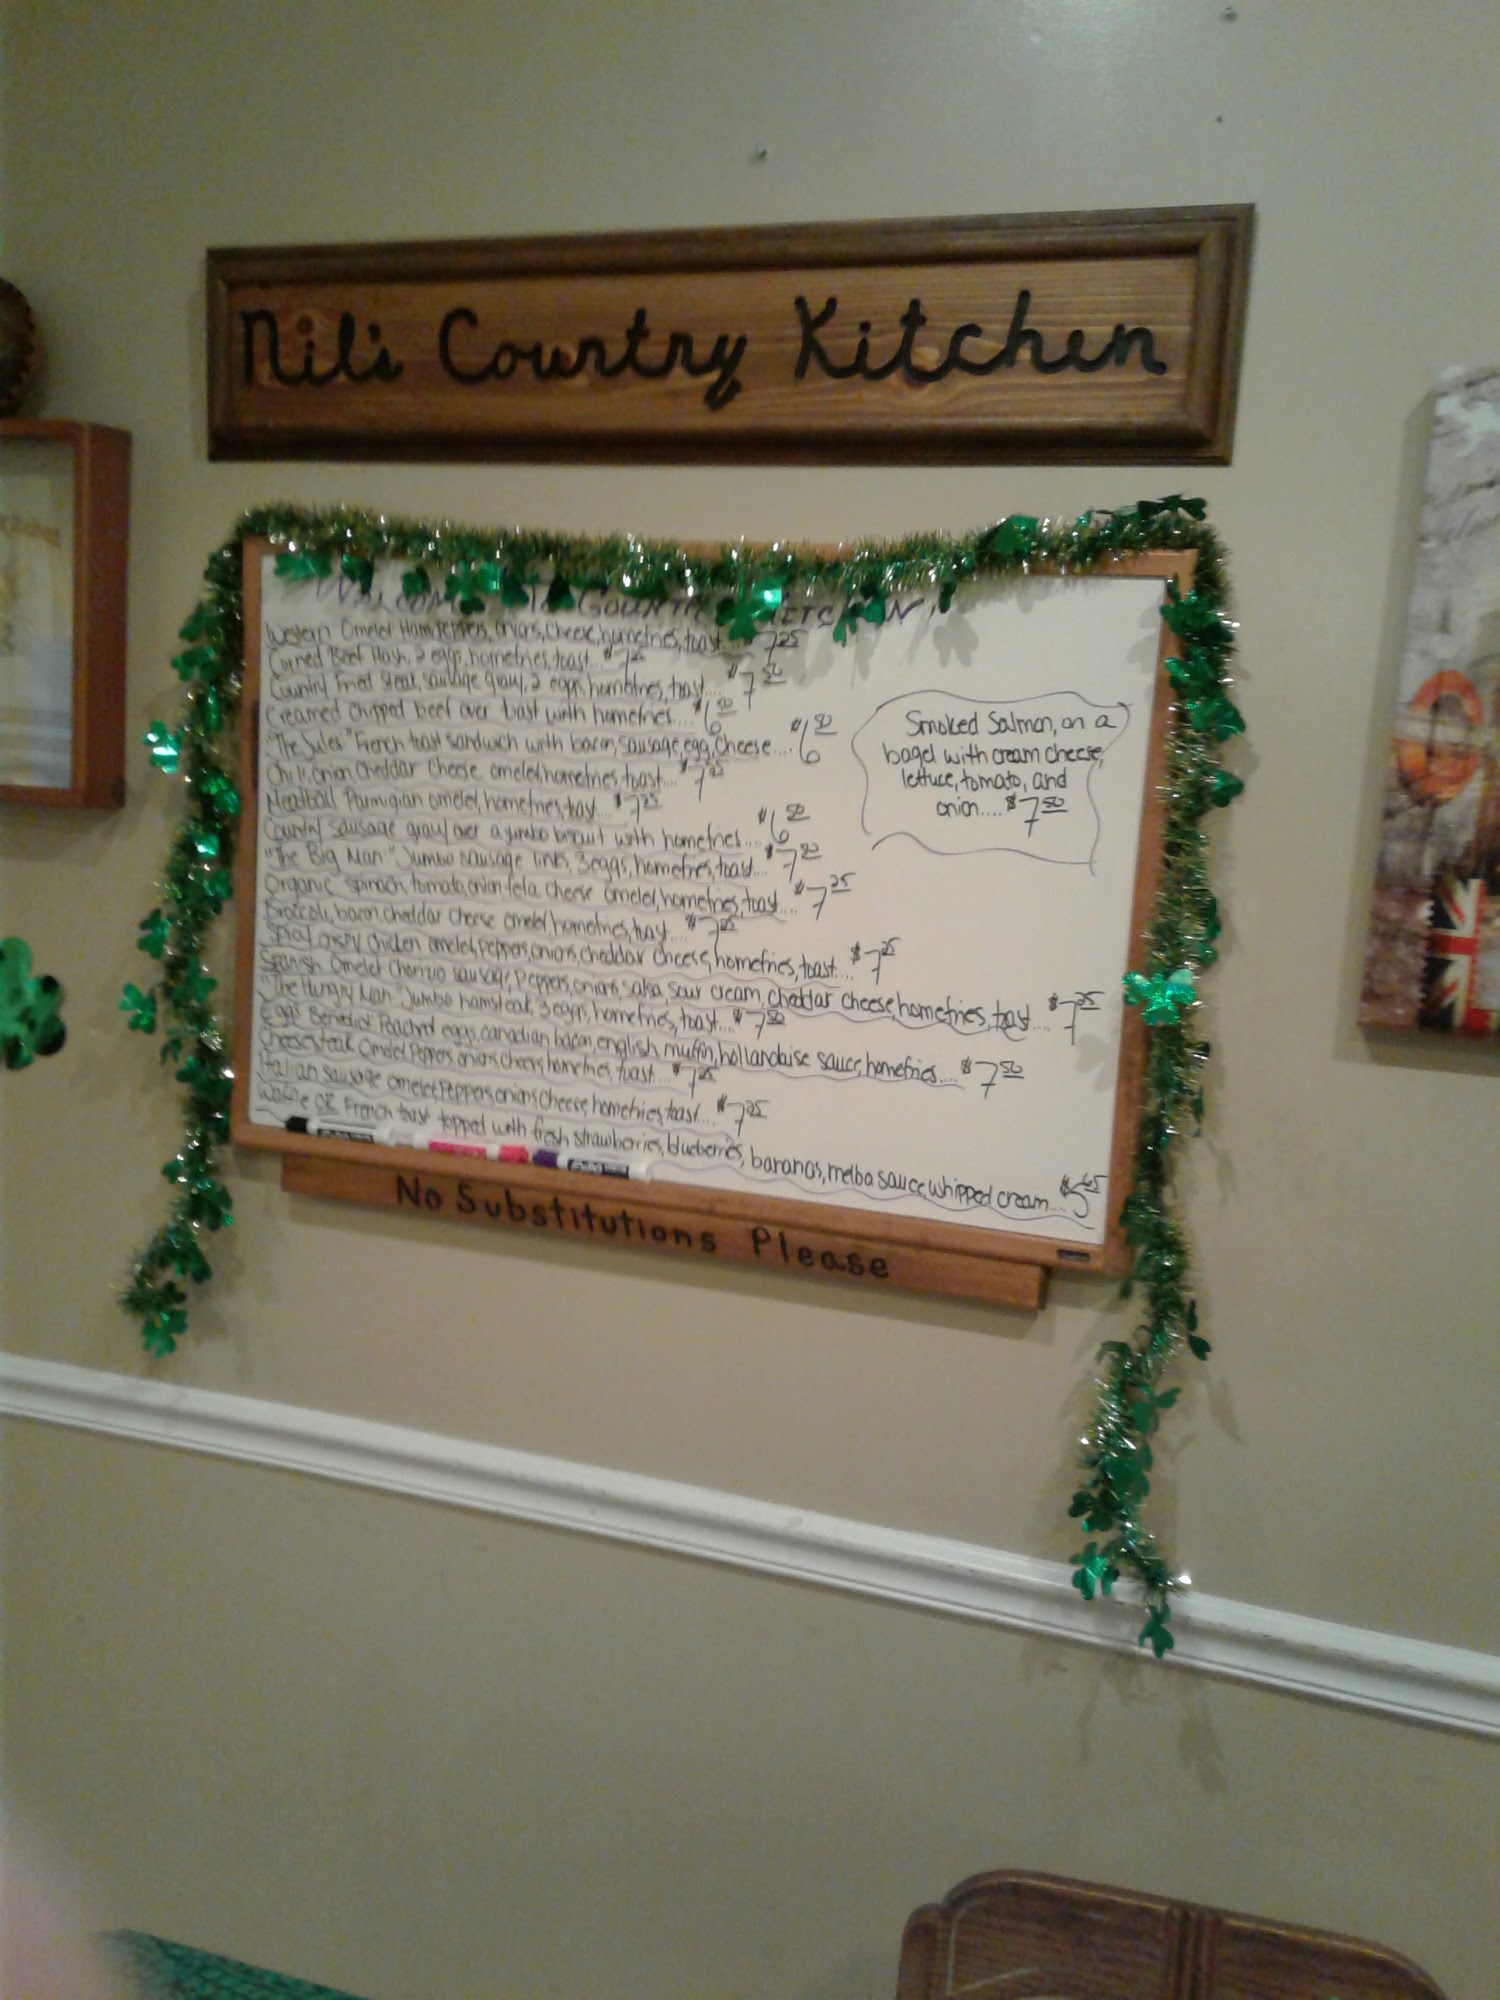 Nil's Country Kitchen
Welcome To Country Kitchen!
Western Omelet Ham, Peppers, onions, cheese, homefries, toast... $7.25
Corned Beef Hash, 2 eggs, homefries, toast... $7.25
Country Fried Steak, sausage gravy, 2 eggs, homefries, toast... $7.50
Creamed chipped beef over toast with homefries.... $6.50
"The Jules" French toast sandwich with bacon, sausage, egg, cheese.... $6.50
Chili, onion cheddar cheese omelet, homefries, toast... $7.25
Meatball Parmigian omelet, homefries, toast... $7.25
Country sausage gravy over a jumbo biscuit with homefries.... $6.50
"The Big Man" Jumbo sausage links, 3 eggs, homefries, toast.... $7.50
Organic spinach, tomato, onion, feta cheese omelet, homefries, toast.... $7.25
Broccoli, bacon, cheddar cheese omelet, homefries, toast... $7.25
Spicy crispy chicken omelet, peppers, onions, cheddar cheese, homefries, toast.... $7.25
Spanish Omelet Chorrizo sausage, Peppers, onions, salsa, sour cream, cheddar cheese, homefries, toast.... $7.25
"The Hungry Man" Jumbo hamsteak, 3 eggs, homefries, toast... $7.50
Eggs Benedict Poached eggs, canadian bacon, english muffin, hollandaise sauce, homefries.... $7.50
Cheesesteak Omelet Peppers, onions, cheese, homefries, toast.... $7.25
Italian sausage omelet, Peppers, onions, cheese, homefries, toast... $7.25
Waffle OR French toast topped with fresh strawberries, blueberries, bananas, melba sauce, whipped cream.... $5.65
Smoked Salmon, on a
bagel with cream cheese,
lettuce, tomato, and
onion.... $7.50
No Substitutions Please